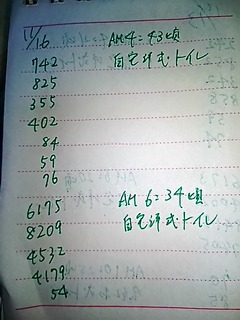 11/16 AM 4=43頃
742 自宅洋式トイレ
825
355
402
84
59
76
6175 AM 6=34頃
8209 自宅洋式トイレ
4532
4179
54